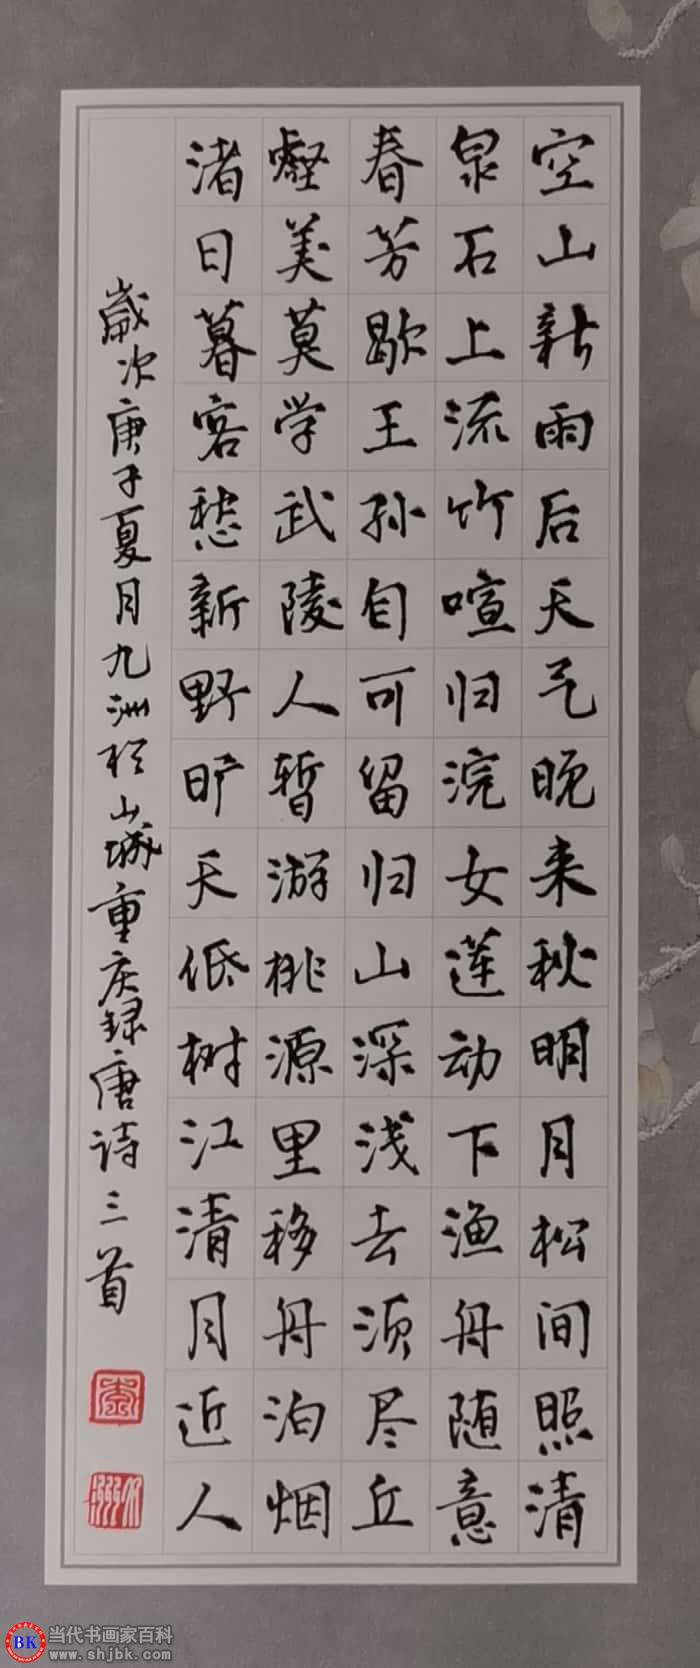 空山新雨后天气晚来秋明月松间照清
泉石上流竹喧归浣女莲动下渔舟随意
春芳歇王孙自可留归山深浅去须尽丘
壑美莫学武陵人暂游桃源里移舟泊烟
渚日暮客愁新野旷天低树江清月近人
歲次庚子夏月九洲於山城重庆録唐诗三首
BK
当代书画家百科
www.shjbk.com